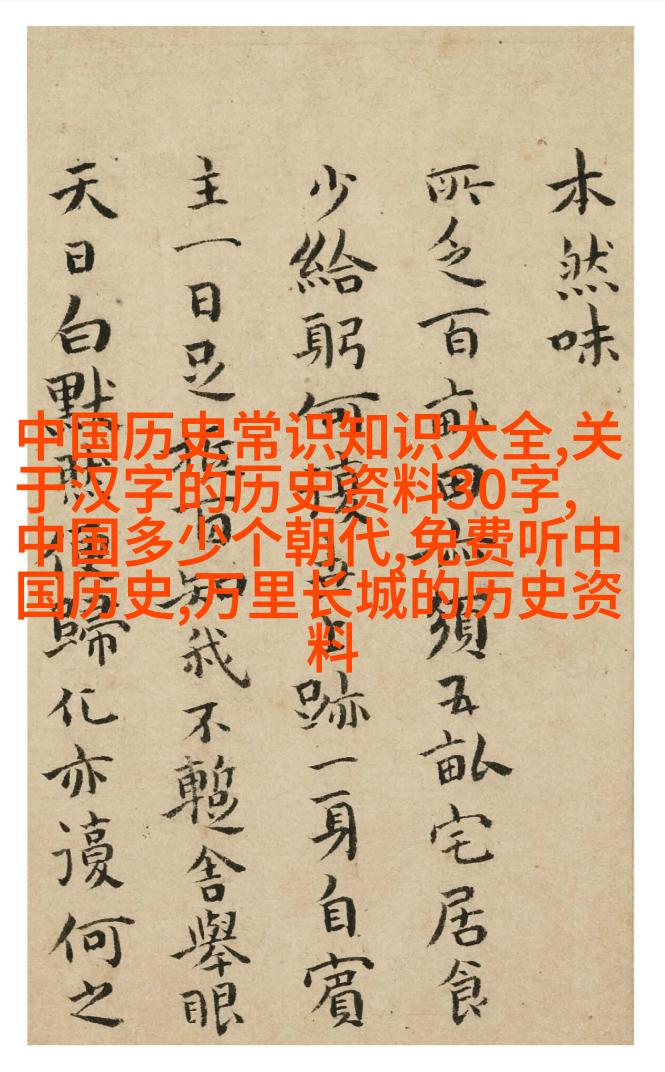 本然味
所乏百畝田須五畝宅居食
少給躬何跡一身自賓
主一日足知我不暫舍舉眼
天日白默歸化亦謾何之
中国历史常识知识大全,关
于汉字的历史资料30字,
中国多少个朝代,免费听中
国历史,万里长城的历史资
料